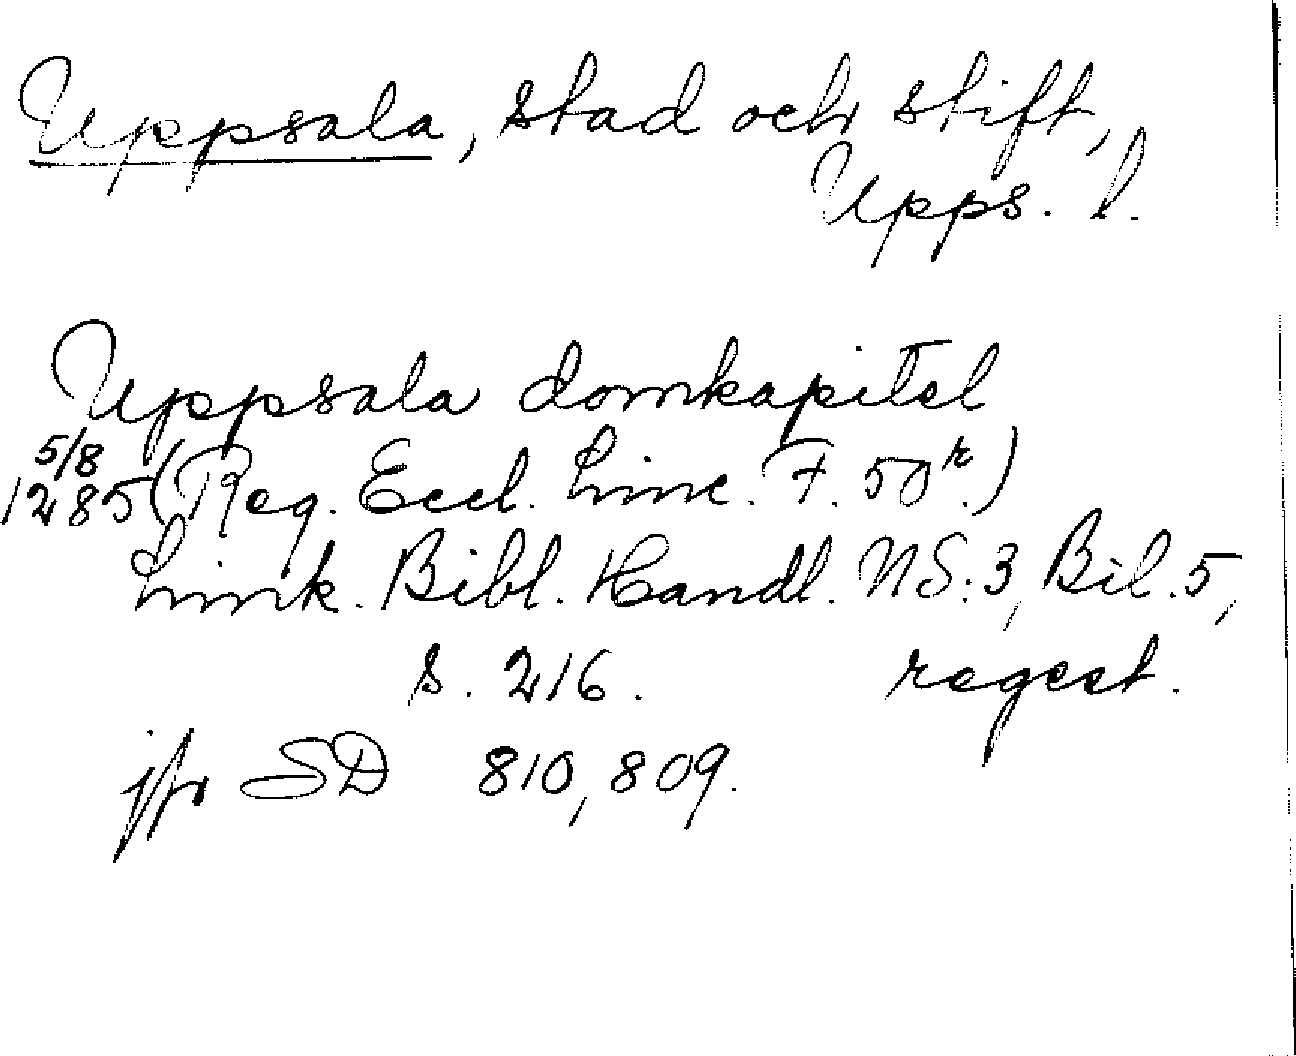 Uppsala, stad och stift,
Upps. l.
Uppsala domkapitel
5/8
1285 (Reg. Eccl. Linc. F. 50r.)
Link. Bibl. Handl. NS. 3, Bil. 5,
s. 216. regest.
jfr SD 810, 809.